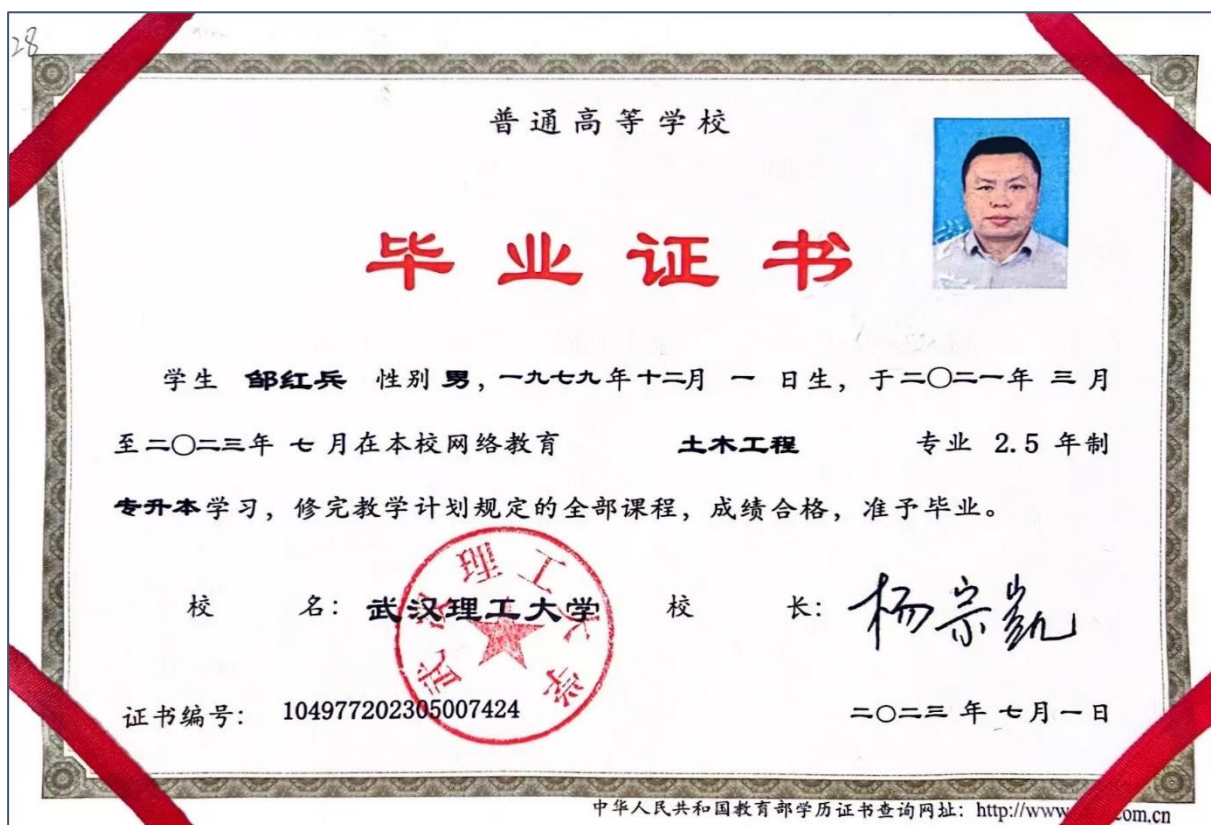 28
普通高等学校
毕业证书
学生 邹红兵 性别 男，一九七九年十二月 一 日生，于二〇二一年 三 月
至二〇二三年 七 月在本校网络教育 土木工程 专业 2.5 年制
专升本学习，修完教学计划规定的全部课程，成绩合格，准予毕业。
校 名：武汉理工大学 校 长：杨宗凯
武汉理工大学
证书编号： 104977202305007424 二〇二三 年 七 月 一 日
中华人民共和国教育部学历证书查询网址：http://www om.cn